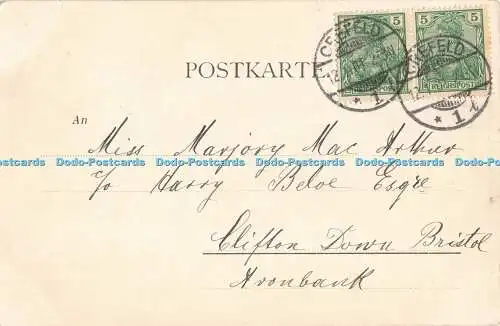 5 5
CREFELD CREFELD
POSTKARTE
REICHSPOST
* 1 * 1
An
Miss Marjory Mac Arthur
Dodo-Postcards Dodo-Postcards Dodo-Postcards Dodo-Postcards Dodo-Postcards
c/o Harry Beloe Esqre
Clifton Down Bristol
Avonbank